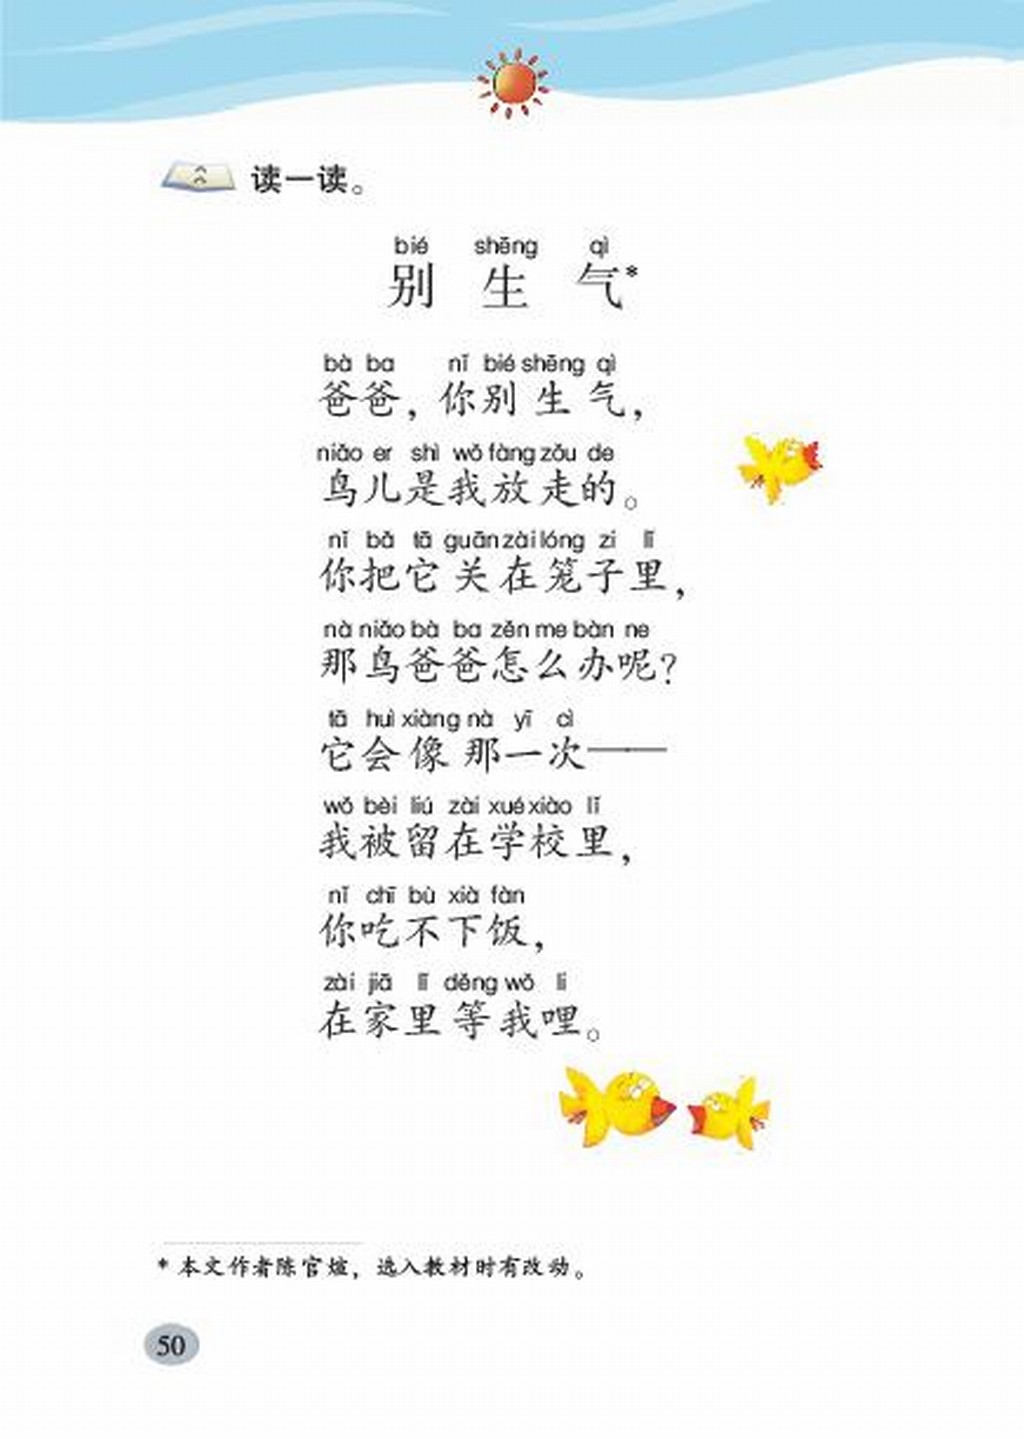 读一读。
bié shēng qì
别生气*
bà ba nǐ bié shēng qì
爸爸，你别生气，
niǎo er shì wǒ fàng zǒu de
鸟儿是我放走的。
nǐ bǎ tā guān zài lóng zi lǐ
你把它关在笼子里，
nà niǎo bà ba zěn me bàn ne
那鸟爸爸怎么办呢？
tā huì xiàng nà yī cì
它会像那一次——
wǒ bèi liú zài xué xiào lǐ
我被留在学校里，
nǐ chī bù xià fàn
你吃不下饭，
zài jiā lǐ děng wǒ li
在家里等我哩。
* 本文作者陈官煊，选入教材时有改动。
50